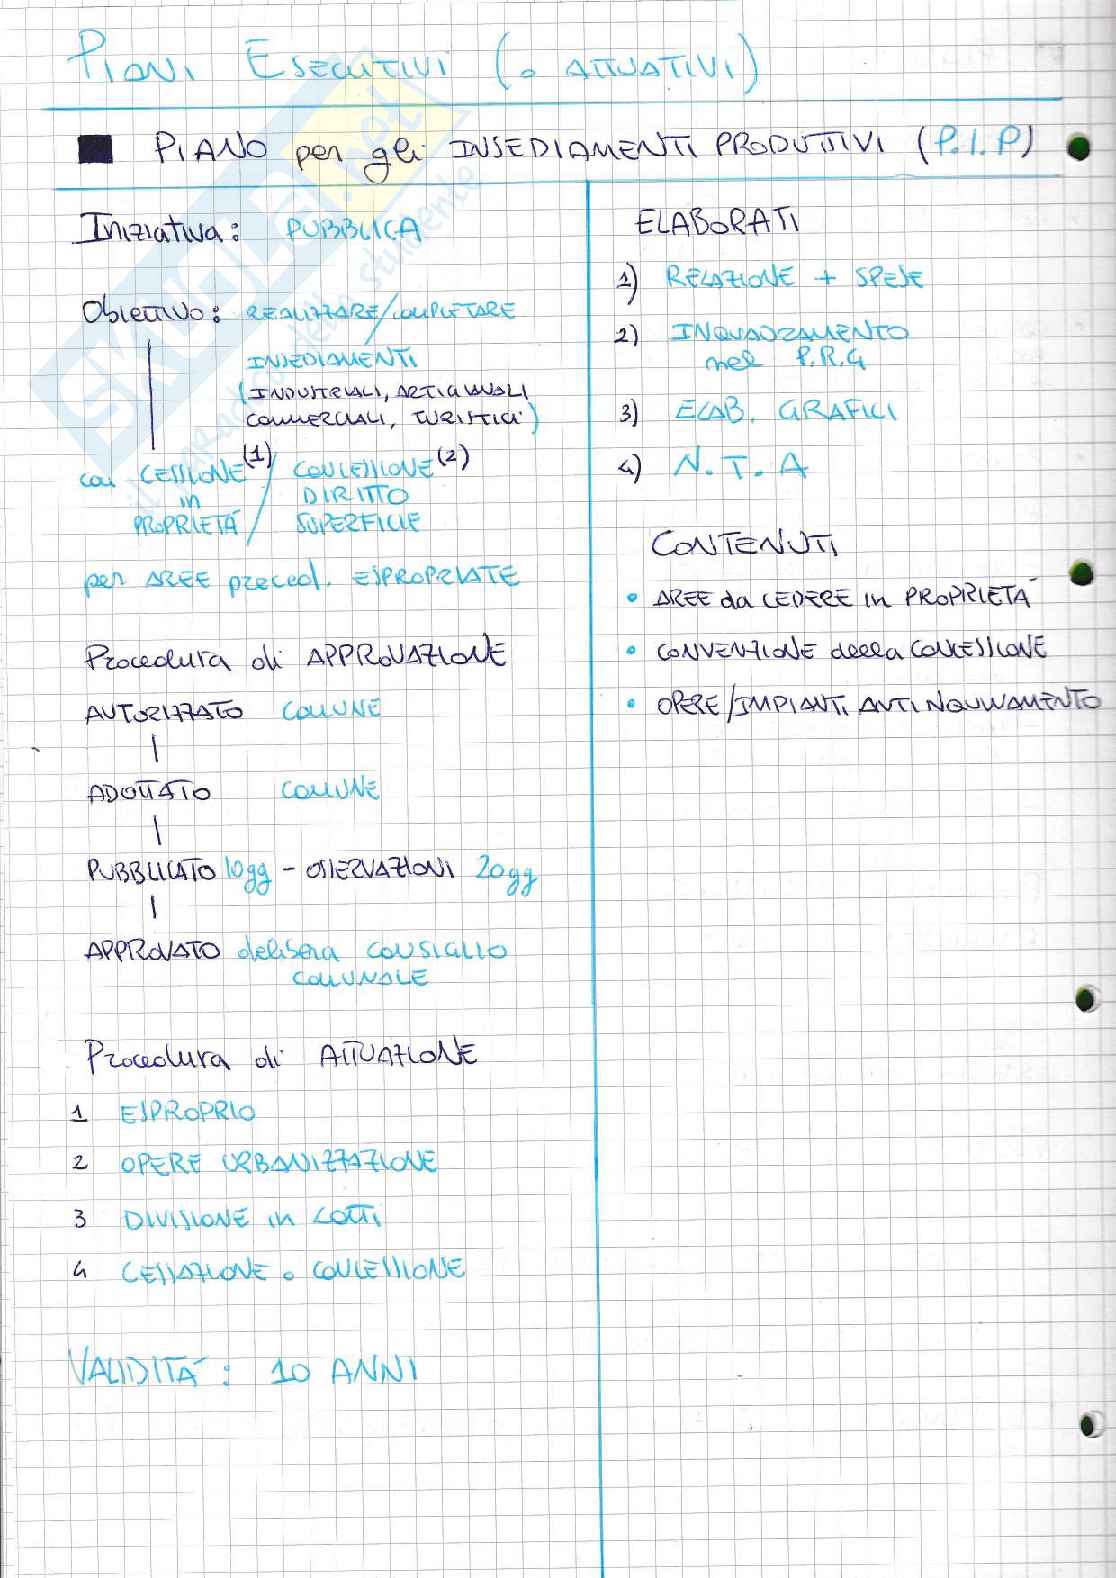 PIANI ESECUTIVI (o ATTUATIVI)
PIANO per gli INSEDIAMENTI PRODUTTIVI (P.I.P)
Iniziativa: PUBBLICA
Obiettivo: REALIZZARE/COMPLETARE
INSEDIAMENTI
(INDUSTRIALI, ARTIGIANALI
COMMERCIALI, TURISTICI)
con CESSIONE (1) / CONCESSIONE (2)
in DIRITTO
PROPRIETÁ / SUPERFICIE
per AREE preced. ESPROPRIATE
Procedura di APPROVAZIONE
AUTORIZZATO COMUNE
ADOTTATO COMUNE
PUBBLICATO 10gg - OSSERVAZIONI 20gg
APPROVATO delibera CONSIGLIO
COMUNALE
Procedura di ATTUAZIONE
1 ESPROPRIO
2 OPERE URBANIZZAZIONE
3 DIVISIONE in LOTTI
4 CESSAZIONE o CONCESSIONE
VALIDITÁ: 10 ANNI
ELABORATI
1) RELAZIONE + SPESE
2) INQUADRAMENTO
nel P.R.G
3) ELAB. GRAFICI
4) N.T.A
CONTENUTI
• AREE da CEDERE in PROPRIETÁ
• CONVENZIONE della CONCESSIONE
• OPERE/IMPIANTI ANTI INQUINAMENTO
SKUOLA.net
il paradiso dello studente